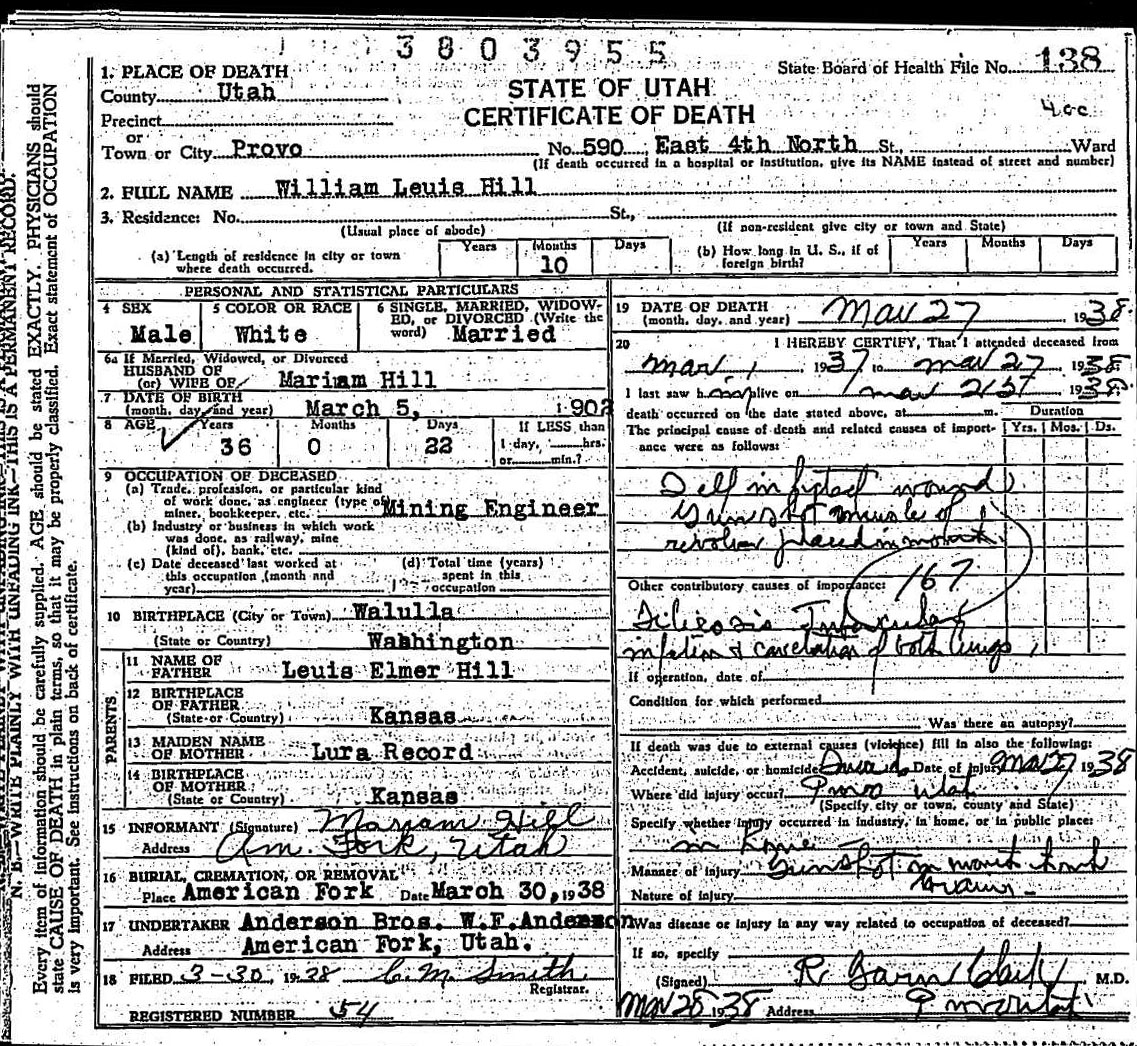 3803955
State Board of Health File No. 138
1. PLACE OF DEATH
County Utah
STATE OF UTAH
CERTIFICATE OF DEATH
Precinct
or
Town or City Provo No. 590 East 4th North St., Ward
(If death occurred in a hospital or institution, give its NAME instead of street and number)
2. FULL NAME William Leuis Hill
3. Residence: No. St.,
(Usual place of abode) (If non-resident give city or town and State)
(a) Length of residence in city or town where death occurred. Years Months 10 Days
(b) How long in U. S., if of foreign birth? Years Months Days
PERSONAL AND STATISTICAL PARTICULARS
4 SEX Male
5 COLOR OR RACE White
6 SINGLE, MARRIED, WIDOWED, or DIVORCED (Write the word) Married
6a If Married, Widowed, or Divorced
HUSBAND OF
(or) WIFE OF Mariam Hill
7 DATE OF BIRTH
(month, day, and year) March 5, 1902
8 AGE Years 36 Months 0 Days 22 If LESS than 1 day, hrs. or min.?
9 OCCUPATION OF DECEASED
(a) Trade, profession, or particular kind
of work done, as engineer (type of)
miner, bookkeeper, etc. Mining Engineer
(b) Industry or business in which work
was done, as railway, mine
(kind of), bank, etc.
(c) Date deceased last worked at
this occupation (month and
year)
(d) Total time (years)
spent in this
occupation
10 BIRTHPLACE (City or Town) Walulla
(State or Country) Washington
PARENTS
11 NAME OF
FATHER Leuis Elmer Hill
12 BIRTHPLACE
OF FATHER
(State or Country) Kansas
13 MAIDEN NAME
OF MOTHER Lura Record
14 BIRTHPLACE
OF MOTHER
(State or Country) Kansas
15 INFORMANT (Signature) Mariam Hill
Address Am. Fork, Utah
16 BURIAL, CREMATION, OR REMOVAL
Place American Fork Date March 30, 1938
17 UNDERTAKER Anderson Bros. W.F.Anderson
Address American Fork, Utah.
18 FILED 3-30, 1938 C.M. Smith
Registrar.
REGISTERED NUMBER 54
19 DATE OF DEATH
(month, day, and year) Mar 27 1938
20 I HEREBY CERTIFY, That I attended deceased from
Mar 1, 1937 to Mar 27 1938
I last saw h im alive on Mar 21st 1938
death occurred on the date stated above, at m.
Duration
Yrs. Mos. Ds.
The principal cause of death and related causes of importance were as follows:
Self inflicted wound
Gunshot muzzle of
revolver placed in mouth.
Other contributory causes of importance: 167
infection & cavitation of both lungs
If operation, date of
Condition for which performed
Was there an autopsy?
If death was due to external causes (violence) fill in also the following:
Accident, suicide, or homicide Suicide Date of injury Mar 27 1938
Where did injury occur? Provo Utah
(Specify city or town, county and State)
Specify whether injury occurred in industry, in home, or in public place:
in home
Manner of injury Gunshot in mouth
Nature of injury
Was disease or injury in any way related to occupation of deceased?
If so, specify
(Signed) R. Garn Clark M.D.
Mar 28 1938 Address Provo Utah
N. B.—WRITE PLAINLY WITH UNFADING INK—THIS IS A PERMANENT RECORD.
Every item of information should be carefully supplied. AGE should be stated EXACTLY. PHYSICIANS should
state CAUSE OF DEATH in plain terms, so that it may be properly classified. Exact statement of OCCUPATION
is very important. See instructions on back of certificate.